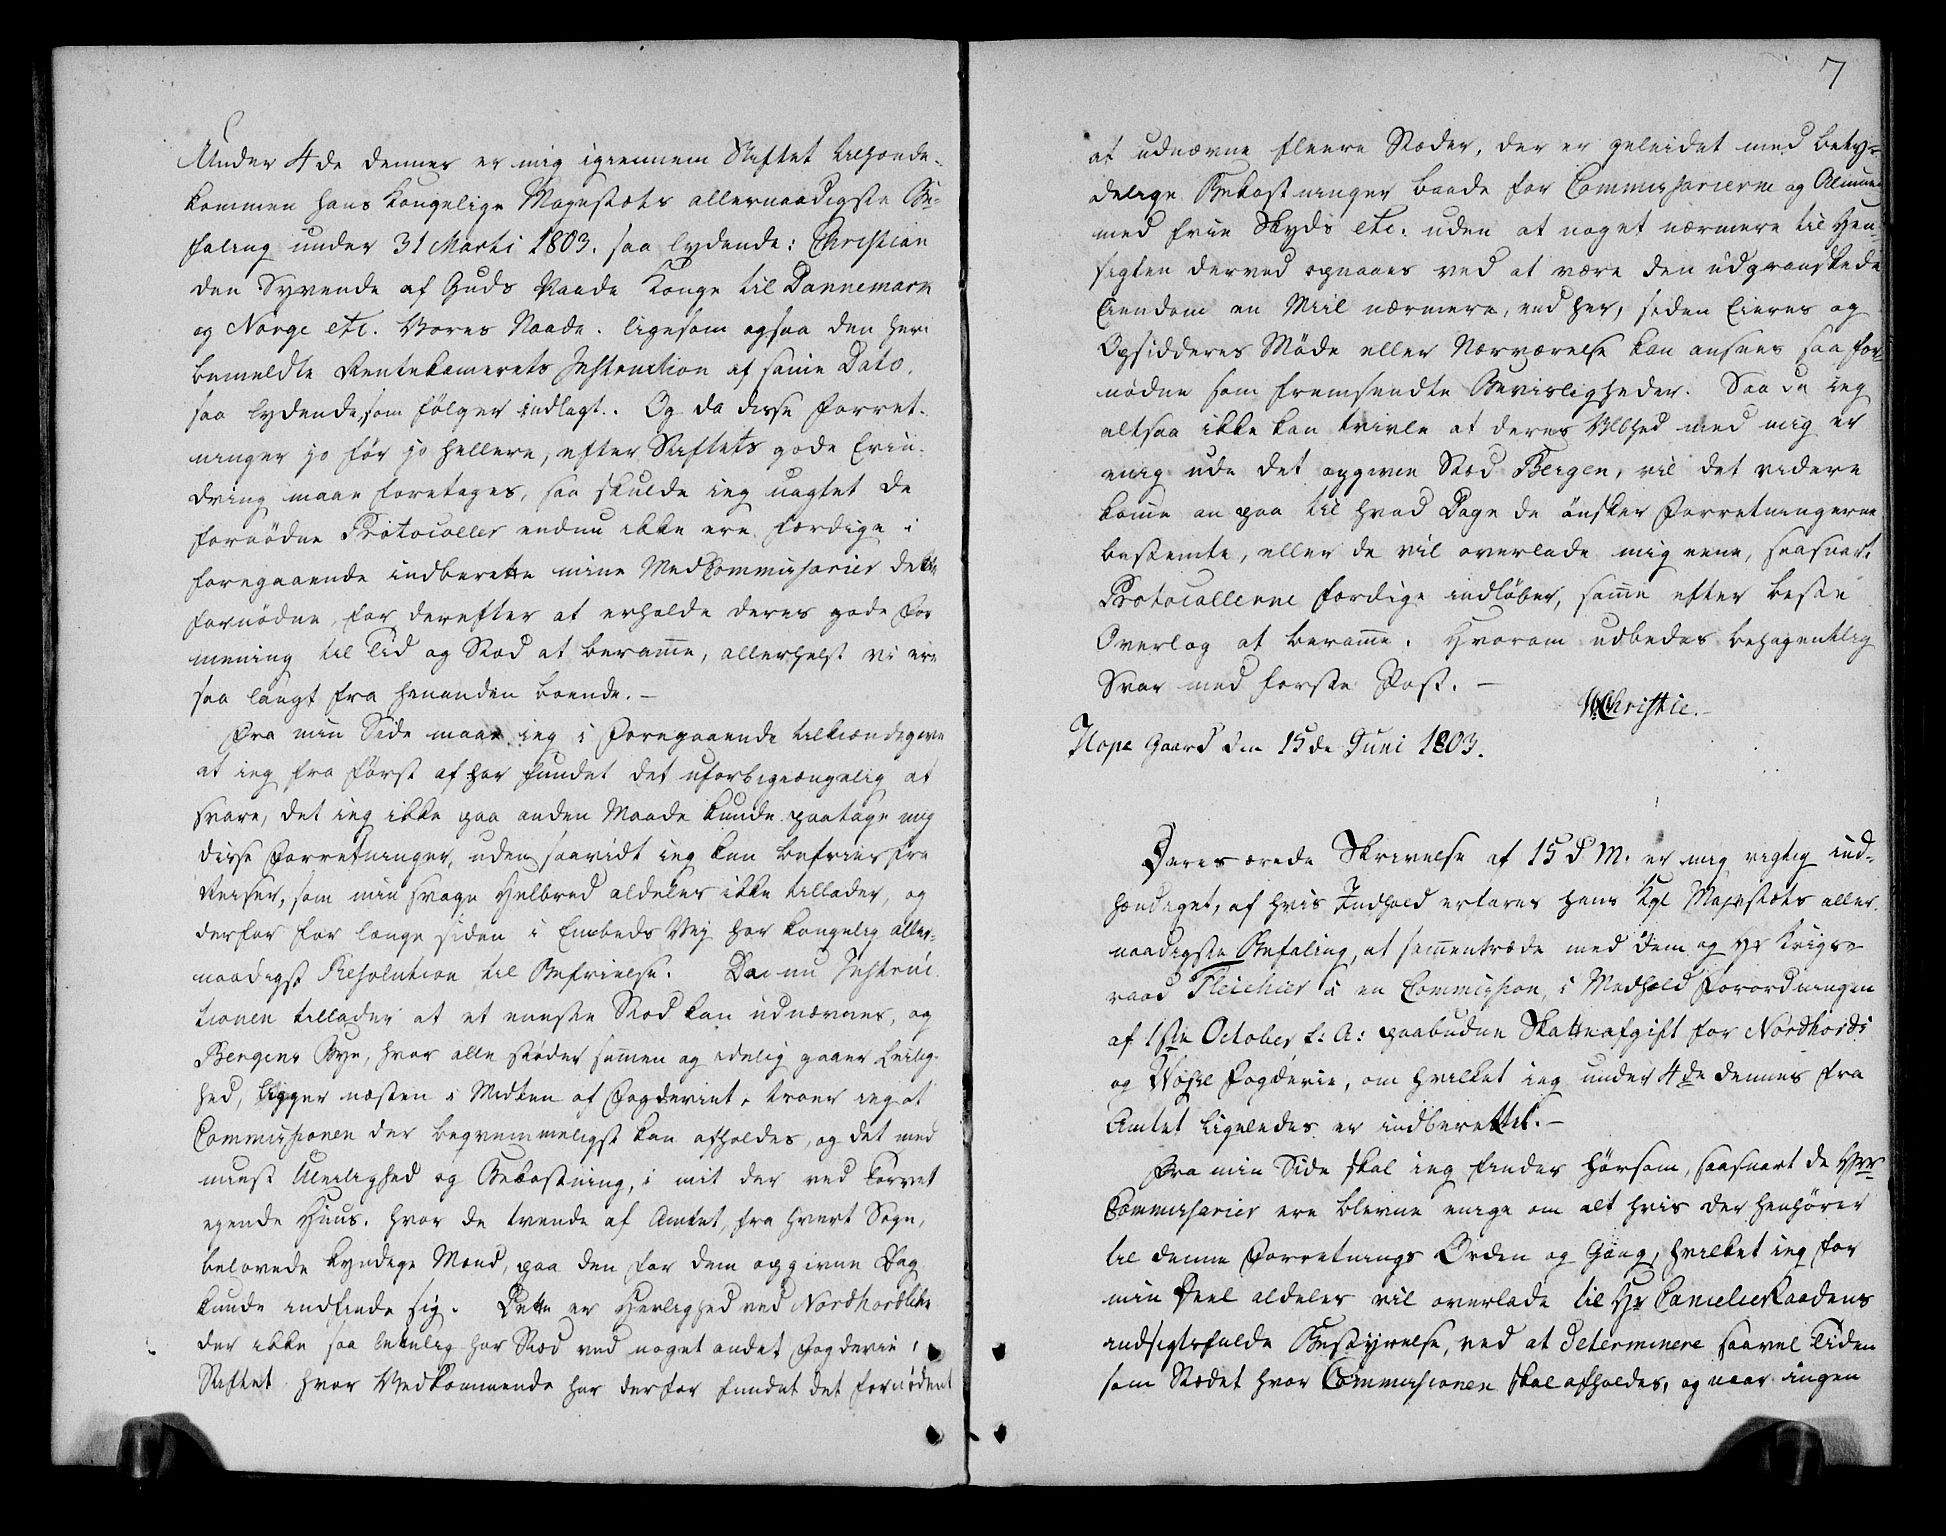 Under 4de dennes er mig igiennem Stiftet tilhænde-
kommen Hans Kongelige Mayestæts allernaadigste Be-
faling under 31 Marti 1803. saa lydende: Christian
den Syvende af Guds Naade Konge til Dannemark
og Norge etc. Vores Naade. ligesom ogsaa den heri
bemeldte Rentekamerets Instruction af samme Dato,
saa lydende, som følger indlagt.. Og da disse Forret-
ninger jo før jo hellere, efter Stiftets gode Erin-
dring maae foretages, saa skulde ieg uagtet de
fornødne Protocoller endnu ikke ere færdige i
foregaaende indberette mine MedCommissarier dette
fornødne, for derefter at erholde deres gode For
mening til Tid og Stæd at beramme, allerhelst vi ere
saa langt fra hinanden boende. -
Fra min Side maae ieg i Foregaaende tilkiændegive
at ieg fra først af har fundet det uforbigiængelig at
svare, det ieg ikke paa anden Maade kunde paatage mig
disse Forretninger, uden saavidt ieg kan befries fra
Reiser, som min svage Helbred aldeles ikke tillader, og
derfor for længe siden i Embeds Vej har kongelig aller-
naadigst Resolution til Befrielse. Da nu Instruc
tionen tillader at et eneste Stæd kan udnævnes, og
Bergens Bye, hvor alle støder sammen og idelig gaaer Leilig-
hed, ligger næsten i Midten af Fogderiet, troer ieg at
Commissionen der beqvemmeligst kan afholdes, og det med
minst Uleilighed og Bekostning, i mit der ved Torvet
egende Huus. hvor de tvende af Amtet, fra hvert Sogn,
belovede kyndige Mænd, paa den for dem opgivne Dag
kunde indfinde sig. Dette er Herlighed ved Nordhordlehn
der ikke saa beleilig har Stæd ved noget andet Fogderie i
Stiftet hvor Vedkommende har derfor fundet det fornødent
7
at udnævne fleere Stæder, der er geleidet med bety-
delige Bekostninger baade for Commissarierne og Almuen
med frie Skyds etc. uden at noget nærmere til Hen-
sigten derved opnaaes ved at være den udgranskede
Eiendom en Miil nærmere, end her, siden Eieres og
Opsidderes Møde eller Nærværelse kan ansees saa for-
nødne som fremsendte Bevisligheder. Saa da ieg
altsaa ikke kan tvivle at deres med mig er
enig ude det opgivne Stæd Bergen, vil det videre
komme an paa til hvad Dage de ønsker Forretningerne
bestemte, eller de vil overlade mig eene, saasnart
Protocollerne færdige indløber, samme efter beste
Overlæg at beramme. Hvorom udbedes behagentlig
Svar med første Post. -
WChristie. -
Hope Gaard den 15de Juni 1803.
Deres ærede Skrivelse af 15 d. M. er mig rigtig ind-
hændiget, af hvis Indhold erfares Hans Kgl Majestæts aller-
naadigste Befaling, at sammentræde med dem og Hr Krigs-
raad Fleischer i en Commission, i Medhold Forordningen
af 1ste October f: A: paabudne Skatteafgift for Nordhords
og Vohs Fogderie, om hvilket ieg under 4de dennes fra
Amtet ligeledes er indberettet. -
Fra min Side skal ieg findes hørsom, saasnart de Hrr
Commissarier ere blevne enige om alt hvis der henhører
til denne Forretnings Orden og Gang, hvilket ieg for
min Deel aldeles vil overlade til Hr CancelieRaadens
indsigtsfulde Bestyrelse, ved at determinere saavel Tiden
som Stædet hvor Commissionen skal afholdes, og naar ingen